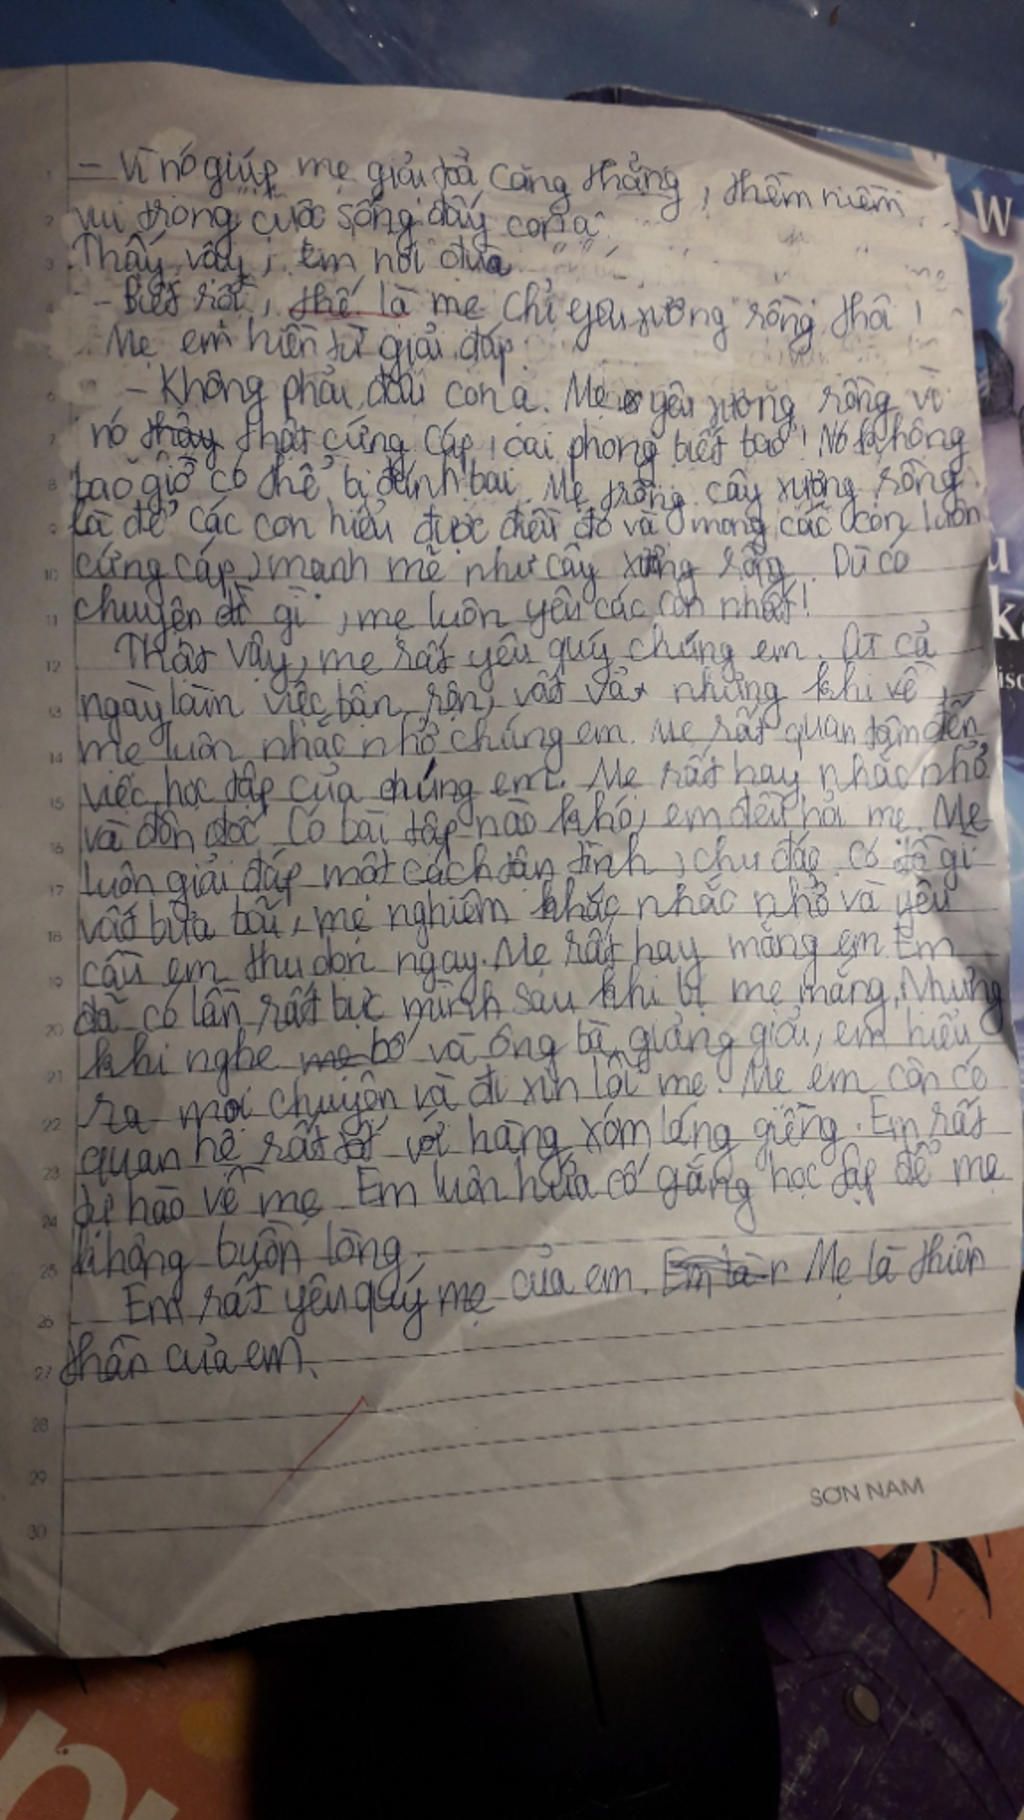 - Vì nó giúp mẹ giải toả căng thẳng, thêm niềm
vui trong cuộc sống đấy con ạ.
Thấy vậy, em nói đùa
- Biết rồi, thế là mẹ chỉ yêu xương rồng thôi!
Mẹ em hiền từ giải đáp:
- Không phải đâu con ạ. Mẹ yêu xương rồng vì
nó thấy thật cứng cáp, oai phong biết bao! Nó không
bao giờ có thể bị đánh bại. Mẹ trồng cây xương rồng
là để các con hiểu được điều đó và mong các con luôn
cứng cáp, mạnh mẽ như cây xương rồng. Dù có
chuyện gì, mẹ luôn yêu các con nhất!
Thật vậy, mẹ rất yêu quý chúng em. Đi cả
ngày làm việc bận rộn, vất vả nhưng khi về,
mẹ luôn nhắc nhở chúng em. Mẹ rất quan tâm đến
việc học tập của chúng em. Mẹ rất hay nhắc nhở
và đôn đốc. Có bài tập nào khó, em đều hỏi mẹ. Mẹ
luôn giải đáp một cách tận tình, chu đáo. Có đồ gì
vứt bừa bãi, mẹ nghiêm khắc nhắc nhở và yêu
cầu em thu dọn ngay. Mẹ rất hay mắng em. Em
đã có lần rất bực mình sau khi bị mẹ mắng. Nhưng
khi nghe mẹ bố và ông bà giảng giải, em hiểu
ra mọi chuyện và đi xin lỗi mẹ. Mẹ em còn có
quan hệ rất tốt với hàng xóm láng giềng. Em rất
tự hào về mẹ. Em luôn hứa cố gắng học tập để mẹ
không buồn lòng.
Em rất yêu quý mẹ của em. Em là Mẹ là thiên
thần của em.
SƠN NAM
1
2
3
4
6
7
8
9
10
11
12
13
14
15
16
17
18
19
20
21
22
23
24
25
26
27
28
29
30
W